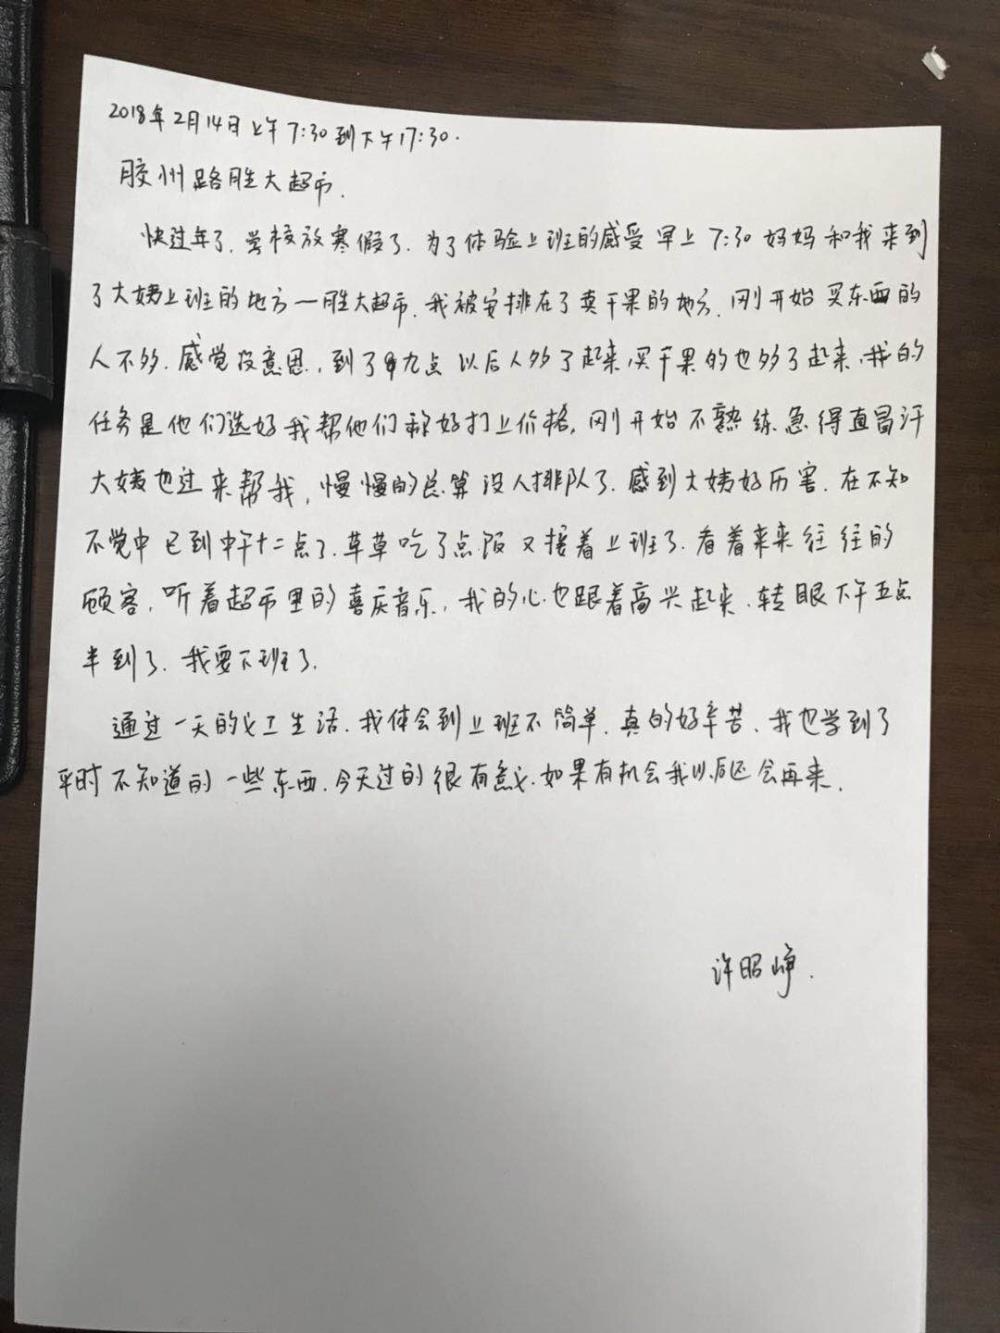 2018年2月14日上午7:30到下午17:30.
胶州路胜大超市.
快过年了.学校放寒假了.为了体验上班的感受早上7:30妈妈和我来到
了大姨上班的地方一胜大超市.我被安排在了卖干果的地方.刚开始买东西的
人不多.感觉没意思.到了九点以后人多了起来,买干果的也多了起来,我的
任务是他们选好我帮他们称好打上价格,刚开始不熟练急得直冒汗
大姨也过来帮我,慢慢的总算没人排队了.感到大姨好历害.在不知
不觉中已到中午十二点了.草草吃了点饭又接着上班了.看着来来往往的
顾客,听着超市里的喜庆音乐,我的心也跟着高兴起来.转眼下午五点
半到了.我要下班了.
通过一天的义工生活.我体会到上班不简单.真的好辛苦.我也学到了
平时不知道的一些东西.今天过的很有意义.如果有机会我以后还会再来.
许昭峥.